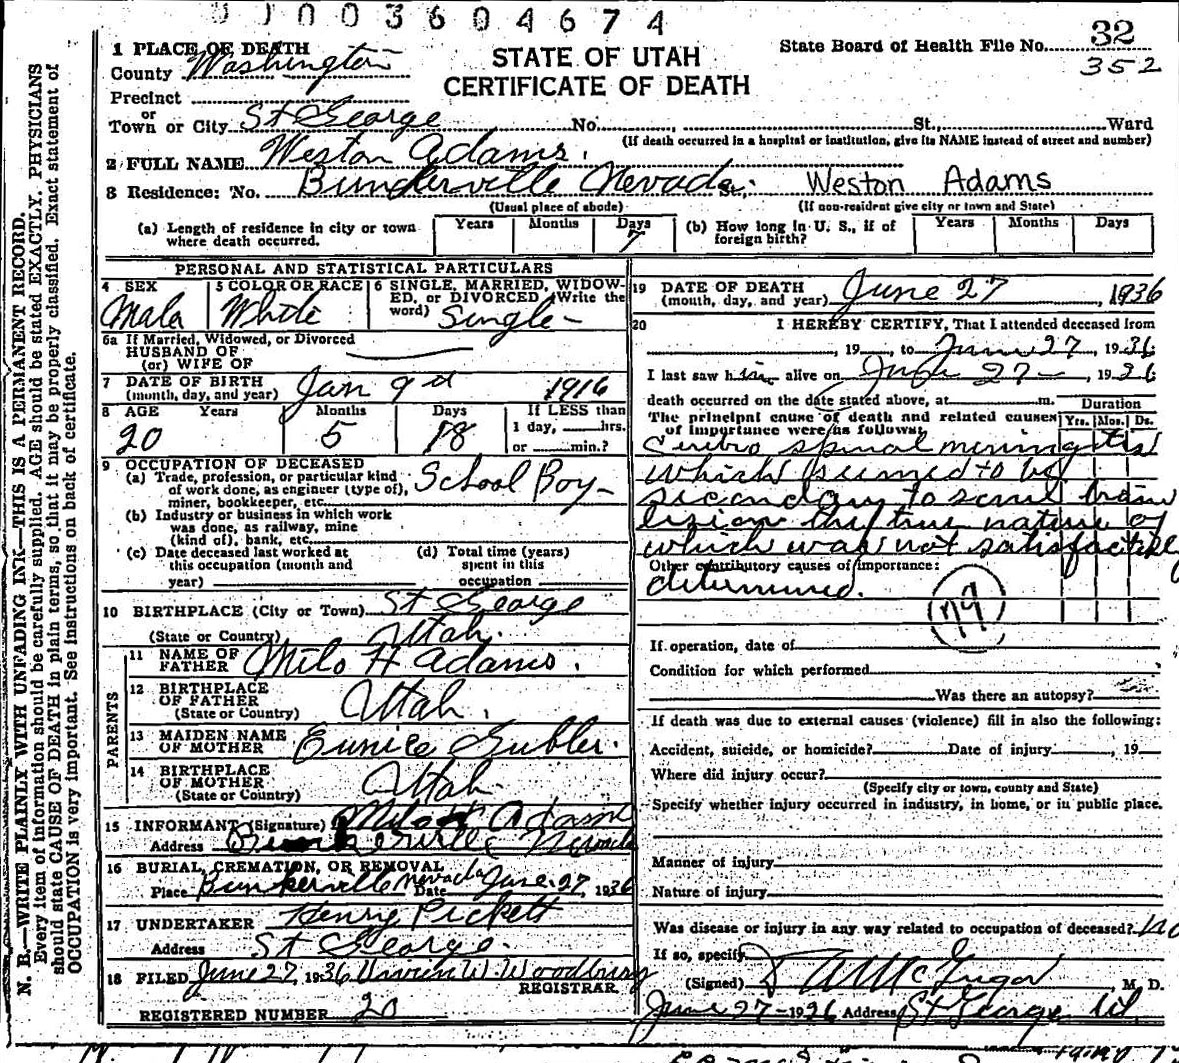 0 1 0 0 3 6 0 4 6 7 4
State Board of Health File No. 32
352
STATE OF UTAH
CERTIFICATE OF DEATH
1 PLACE OF DEATH
County Washington
Precinct
or
Town or City St George No. , St., Ward
(If death occurred in a hospital or institution, give its NAME instead of street and number)
2 FULL NAME Weston Adams.
3 Residence: No. Bunkerville Nevada St. Weston Adams
(Usual place of abode) (If non-resident give city or town and State)
(a) Length of residence in city or town where death occurred. Years Months Days 7 (b) How long in U. S., if of foreign birth? Years Months Days
PERSONAL AND STATISTICAL PARTICULARS
4 SEX Male
5 COLOR OR RACE White
6 SINGLE, MARRIED, WIDOWED, or DIVORCED (Write the word) Single
6a If Married, Widowed, or Divorced
HUSBAND OF
(or) WIFE OF
7 DATE OF BIRTH (month, day, and year) Jan 9 1916
8 AGE Years 20 Months 5 Days 18 If LESS than 1 day, hrs. or min.?
9 OCCUPATION OF DECEASED
(a) Trade, profession, or particular kind of work done, as engineer (type of), miner, bookkeeper, etc. School Boy
(b) Industry or business in which work was done, as railway, mine (kind of), bank, etc.
(c) Date deceased last worked at this occupation (month and year)
(d) Total time (years) spent in this occupation
10 BIRTHPLACE (City or Town) St George
(State or Country) Utah.
PARENTS
11 NAME OF FATHER Milo H Adams.
12 BIRTHPLACE OF FATHER (State or Country) Utah.
13 MAIDEN NAME OF MOTHER Eunice Gubler.
14 BIRTHPLACE OF MOTHER (State or Country) Utah.
15 INFORMANT (Signature) Milo H Adams
Address Bunkerville Nevada
16 BURIAL, CREMATION, OR REMOVAL
Place Bunkerville Nevada Date June 27, 1936
17 UNDERTAKER Henry Pickett
Address St George.
18 FILED June 27, 1936 Vivien W. Woodbury
REGISTRAR
REGISTERED NUMBER 20
19 DATE OF DEATH (month, day, and year) June 27, 1936
20 I HEREBY CERTIFY, That I attended deceased from
, 19 , to June 27, 1936
I last saw him alive on June 27, 1936
death occurred on the date stated above, at m.
The principal cause of death and related causes of importance were as follows: Duration Yrs. Mos. Ds.
Cerebro spinal meningitis
which seemed to be
secondary to some brain
lesion the true nature of
which was not satisfactorily
Other contributory causes of importance:
determined.
79
If operation, date of
Condition for which performed
Was there an autopsy?
If death was due to external causes (violence) fill in also the following:
Accident, suicide, or homicide? Date of injury , 19
Where did injury occur?
(Specify city or town, county and State)
Specify whether injury occurred in industry, in home, or in public place.
Manner of injury
Nature of injury
Was disease or injury in any way related to occupation of deceased? no
If so, specify
(Signed) McGregor, M. D.
June 27-1936 Address St George Ut.
N. B.—WRITE PLAINLY WITH UNFADING INK—THIS IS A PERMANENT RECORD.
Every item of information should be carefully supplied. AGE should be stated EXACTLY. PHYSICIANS
should state CAUSE OF DEATH in plain terms, so that it may be properly classified. Exact statement of
OCCUPATION is very important. See instructions on back of certificate.